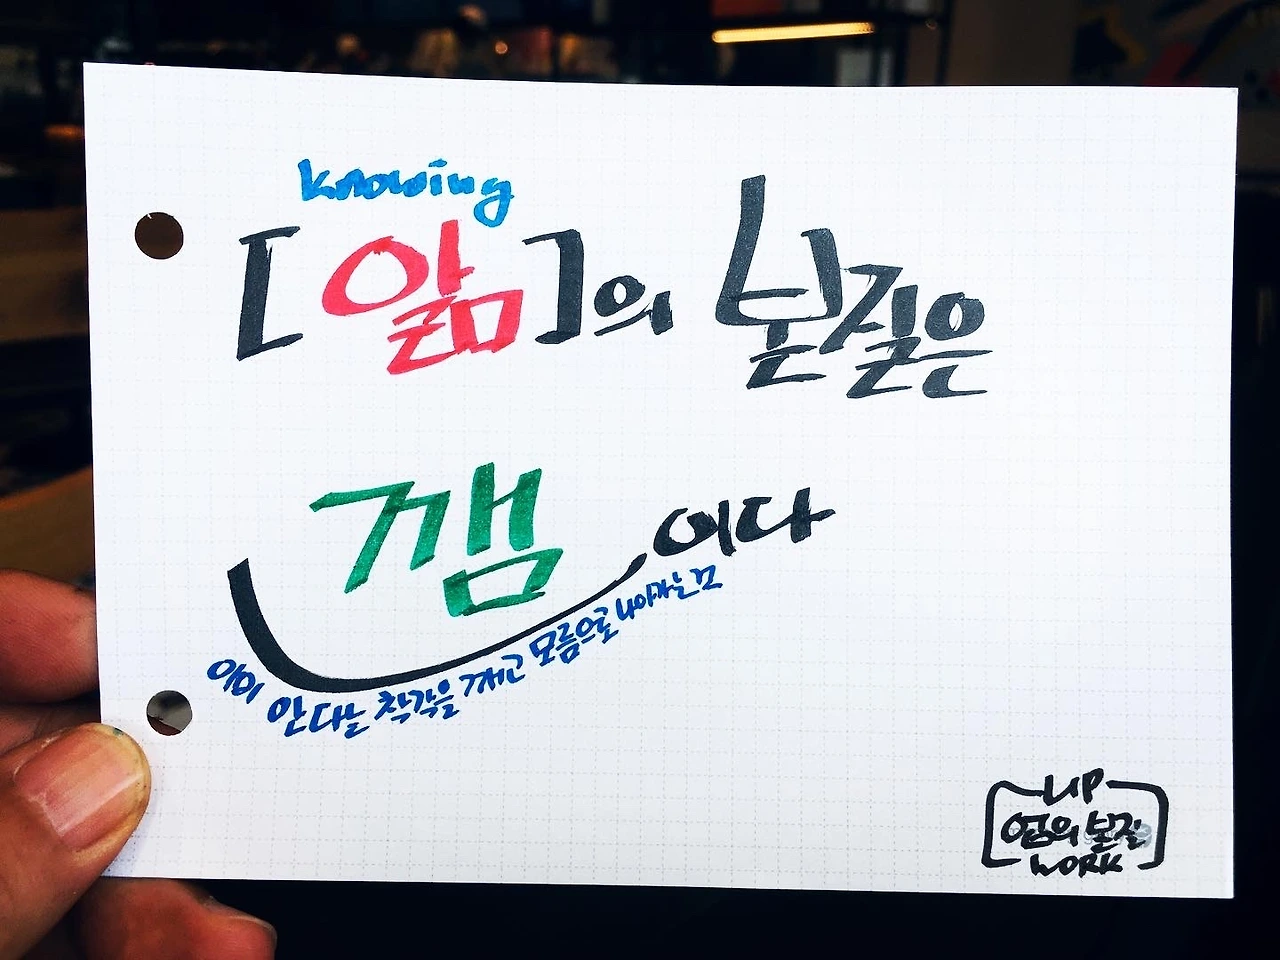 knowing
[앎]의 본질은
깸이다
이미 안다는 착각을 깨고 모름으로 나아가는 것
LIP
업의 본질
WORK